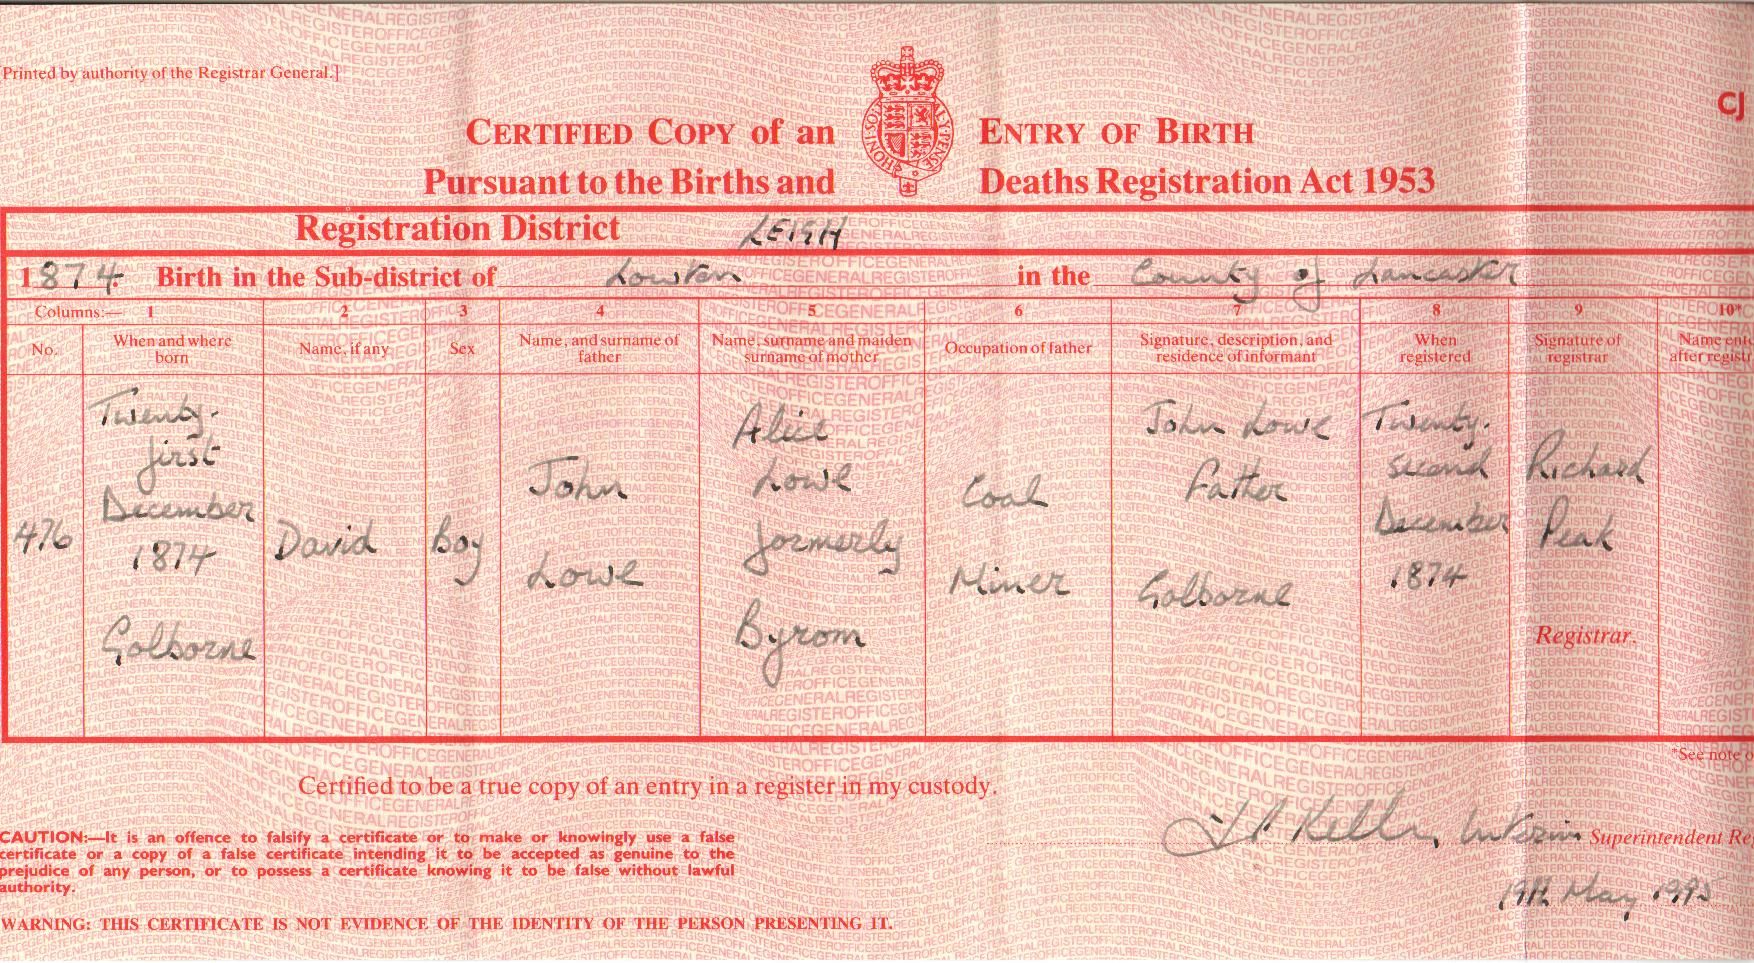 [Printed by authority of the Registrar General.]
CJ
CERTIFIED COPY of an ENTRY OF BIRTH
Pursuant to the Births and Deaths Registration Act 1953
HONI·SOIT
Registration District LEIGH
1874. Birth in the Sub-district of Lowton in the County of Lancaster
Columns:— 1 2 3 4 5 6 7 8 9 10*
No.
When and where
born
Name, if any
Sex
Name, and surname of
father
Name, surname and maiden
surname of mother
Occupation of father
Signature, description, and
residence of informant
When
registered
Signature of
registrar
Name ent
after registr
476
Twenty-
first
December
1874
Golborne
David
Boy
John
Lowe
Alice
Lowe
formerly
Byrom
Coal
Miner
John Lowe
Father
Golborne
Twenty-
second
December
1874
Richard
Peak
Registrar.
*See note o
Certified to be a true copy of an entry in a register in my custody.
Interim Superintendent Re
19th May 1995
CAUTION:—It is an offence to falsify a certificate or to make or knowingly use a false
certificate or a copy of a false certificate intending it to be accepted as genuine to the
prejudice of any person, or to possess a certificate knowing it to be false without lawful
authority.
WARNING: THIS CERTIFICATE IS NOT EVIDENCE OF THE IDENTITY OF THE PERSON PRESENTING IT.